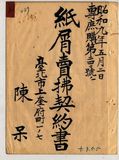 昭和九年五月二日
專賣購第三號
紙屑賣拂契約書
臺北市上奎府町一ノ七
陳 呆